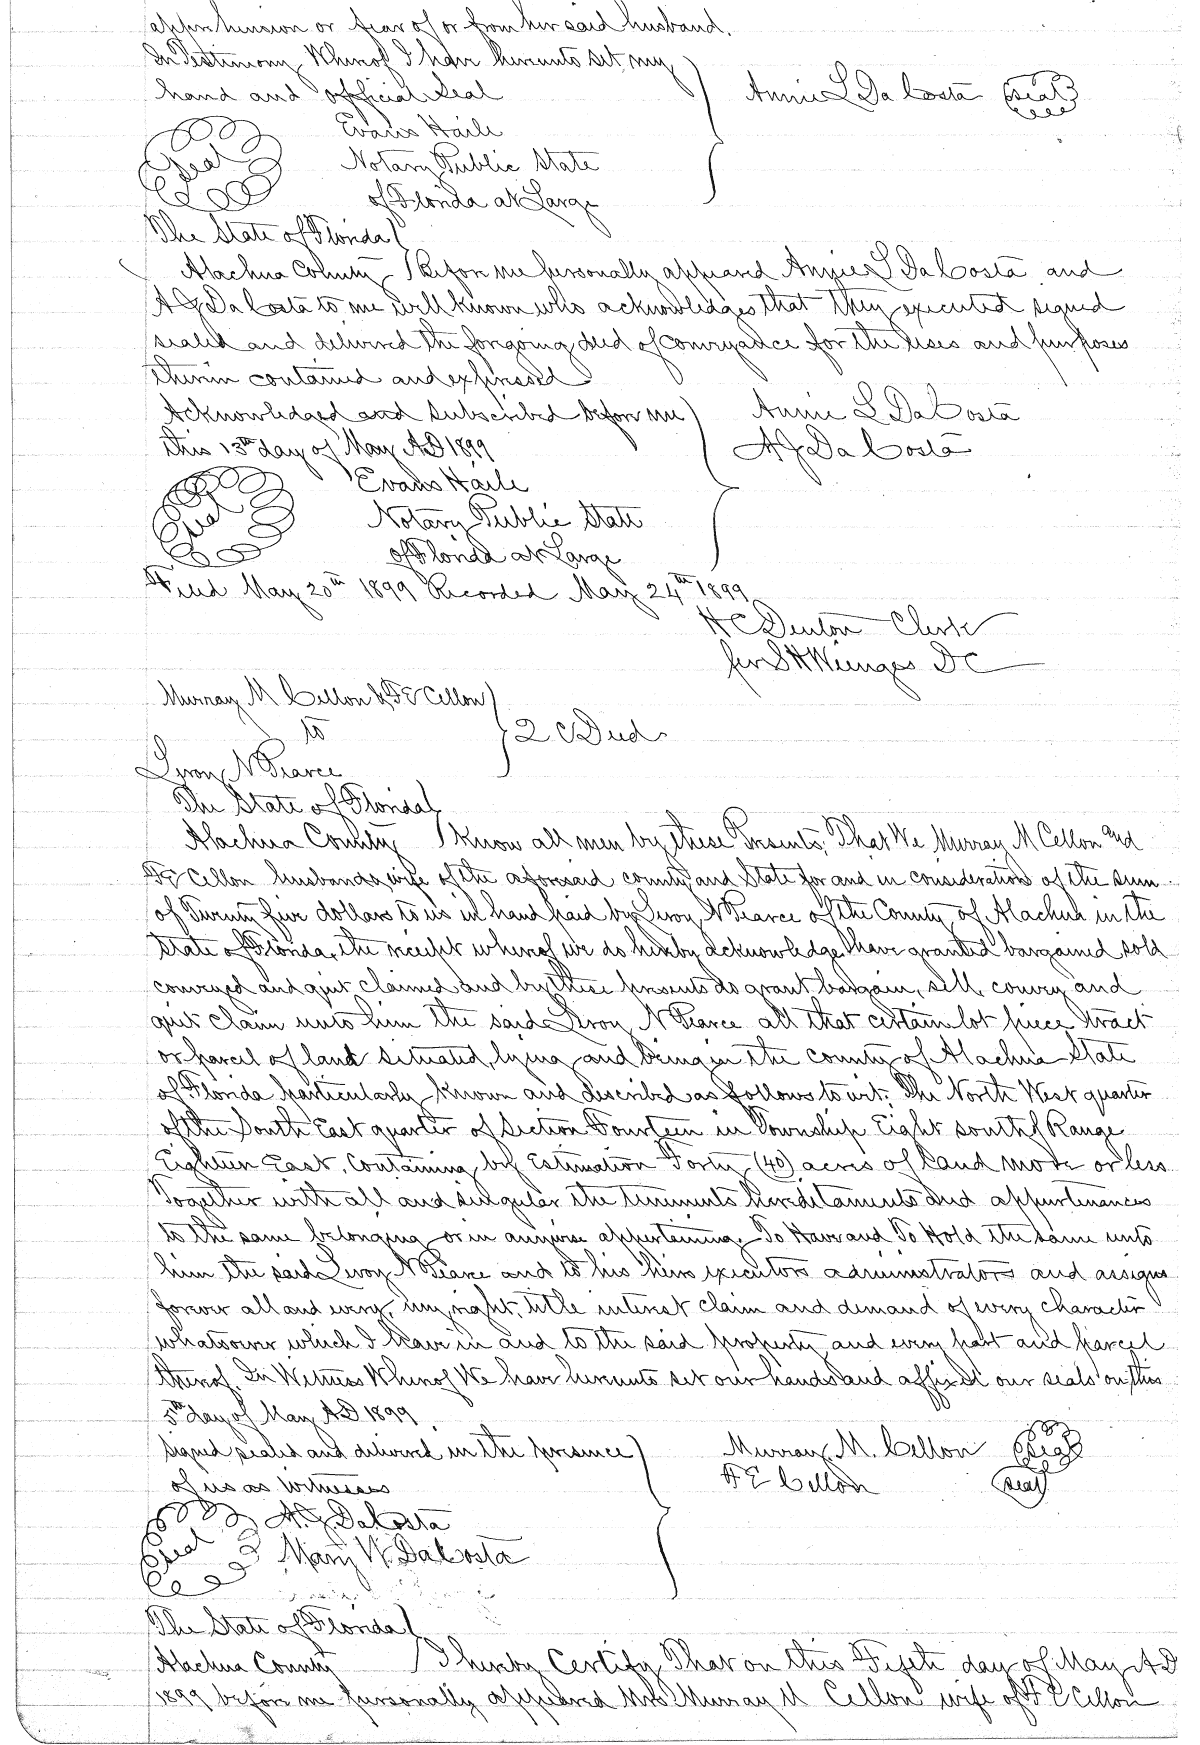 apprehension or fear of or from her said husband.
In Testimony Whereof I have hereunto set my
hand and official seal
Annie L DaCosta (seal)
Evans Haile
(seal)
Notary Public State
of Florida at Large
The State of Florida
Alachua County Before me personally appeared Annie L DaCosta and
A J DaCosta to me well known who acknowledges that they executed signed
sealed and delivered the forgoing deed of conveyance for the uses and purposes
therein contained and expressed
Acknowledged and subscribed before me
Annie L DaCosta
this 13th day of May AD 1899
A J DaCosta
Evans Haile
(seal)
Notary Public State
of Florida at Large
Filed May 20th 1899 Recorded May 24th 1899
H C Denton Clerk
per S H Wienges D C
Murray M Cellon & F E Cellon
to
2 C Deed
Leroy N Pearce
The State of Florida
Alachua County Know all men by these Presents, That We Murray M Cellon and
F E Cellon husband & wife of the aforesaid county and State for and in consideration of the sum
of Twenty five dollars to us in hand paid by Leroy N Pearce of the County of Alachua in the
State of Florida, the receipt whereof we do hereby acknowledge, have granted bargained sold
conveyed and quit claimed and by these presents do grant bargain, sell, convey and
quit claim unto him the said Leroy N Pearce all that certain lot piece tract
or parcel of land situated, lying and being in the county of Alachua State
of Florida particularly known and described as follows to wit: The North West quarter
of the South East quarter of Section Fourteen in Township Eight south of Range
Eighteen East, Containing by Estimation Forty (40) acres of land more or less
Together with all and singular the tenements hereditaments and appurtenances
to the same belonging or in anywise appertaining. To Have and To Hold the same unto
him the said Leroy N Pearce and to his heirs executors administrators and assigns
forever all and every, my, right, title interest claim and demand of every character
whatsoever which I have in and to the said property and every part and parcel
thereof. In Witness Whereof We have hereunto set our hands and affixed our seals on this
5th day of May AD 1899
Signed sealed and delivered in the presence
Murray M. Cellon (seal)
of us as witnesses
F E Cellon (seal)
A. J. DaCosta
(seal)
Mary W. DaCosta
The State of Florida
Alachua County I hereby Certify That on this Fifth day of May AD
1899 before me personally appeared Mrs Murray M Cellon wife of F E Cellon